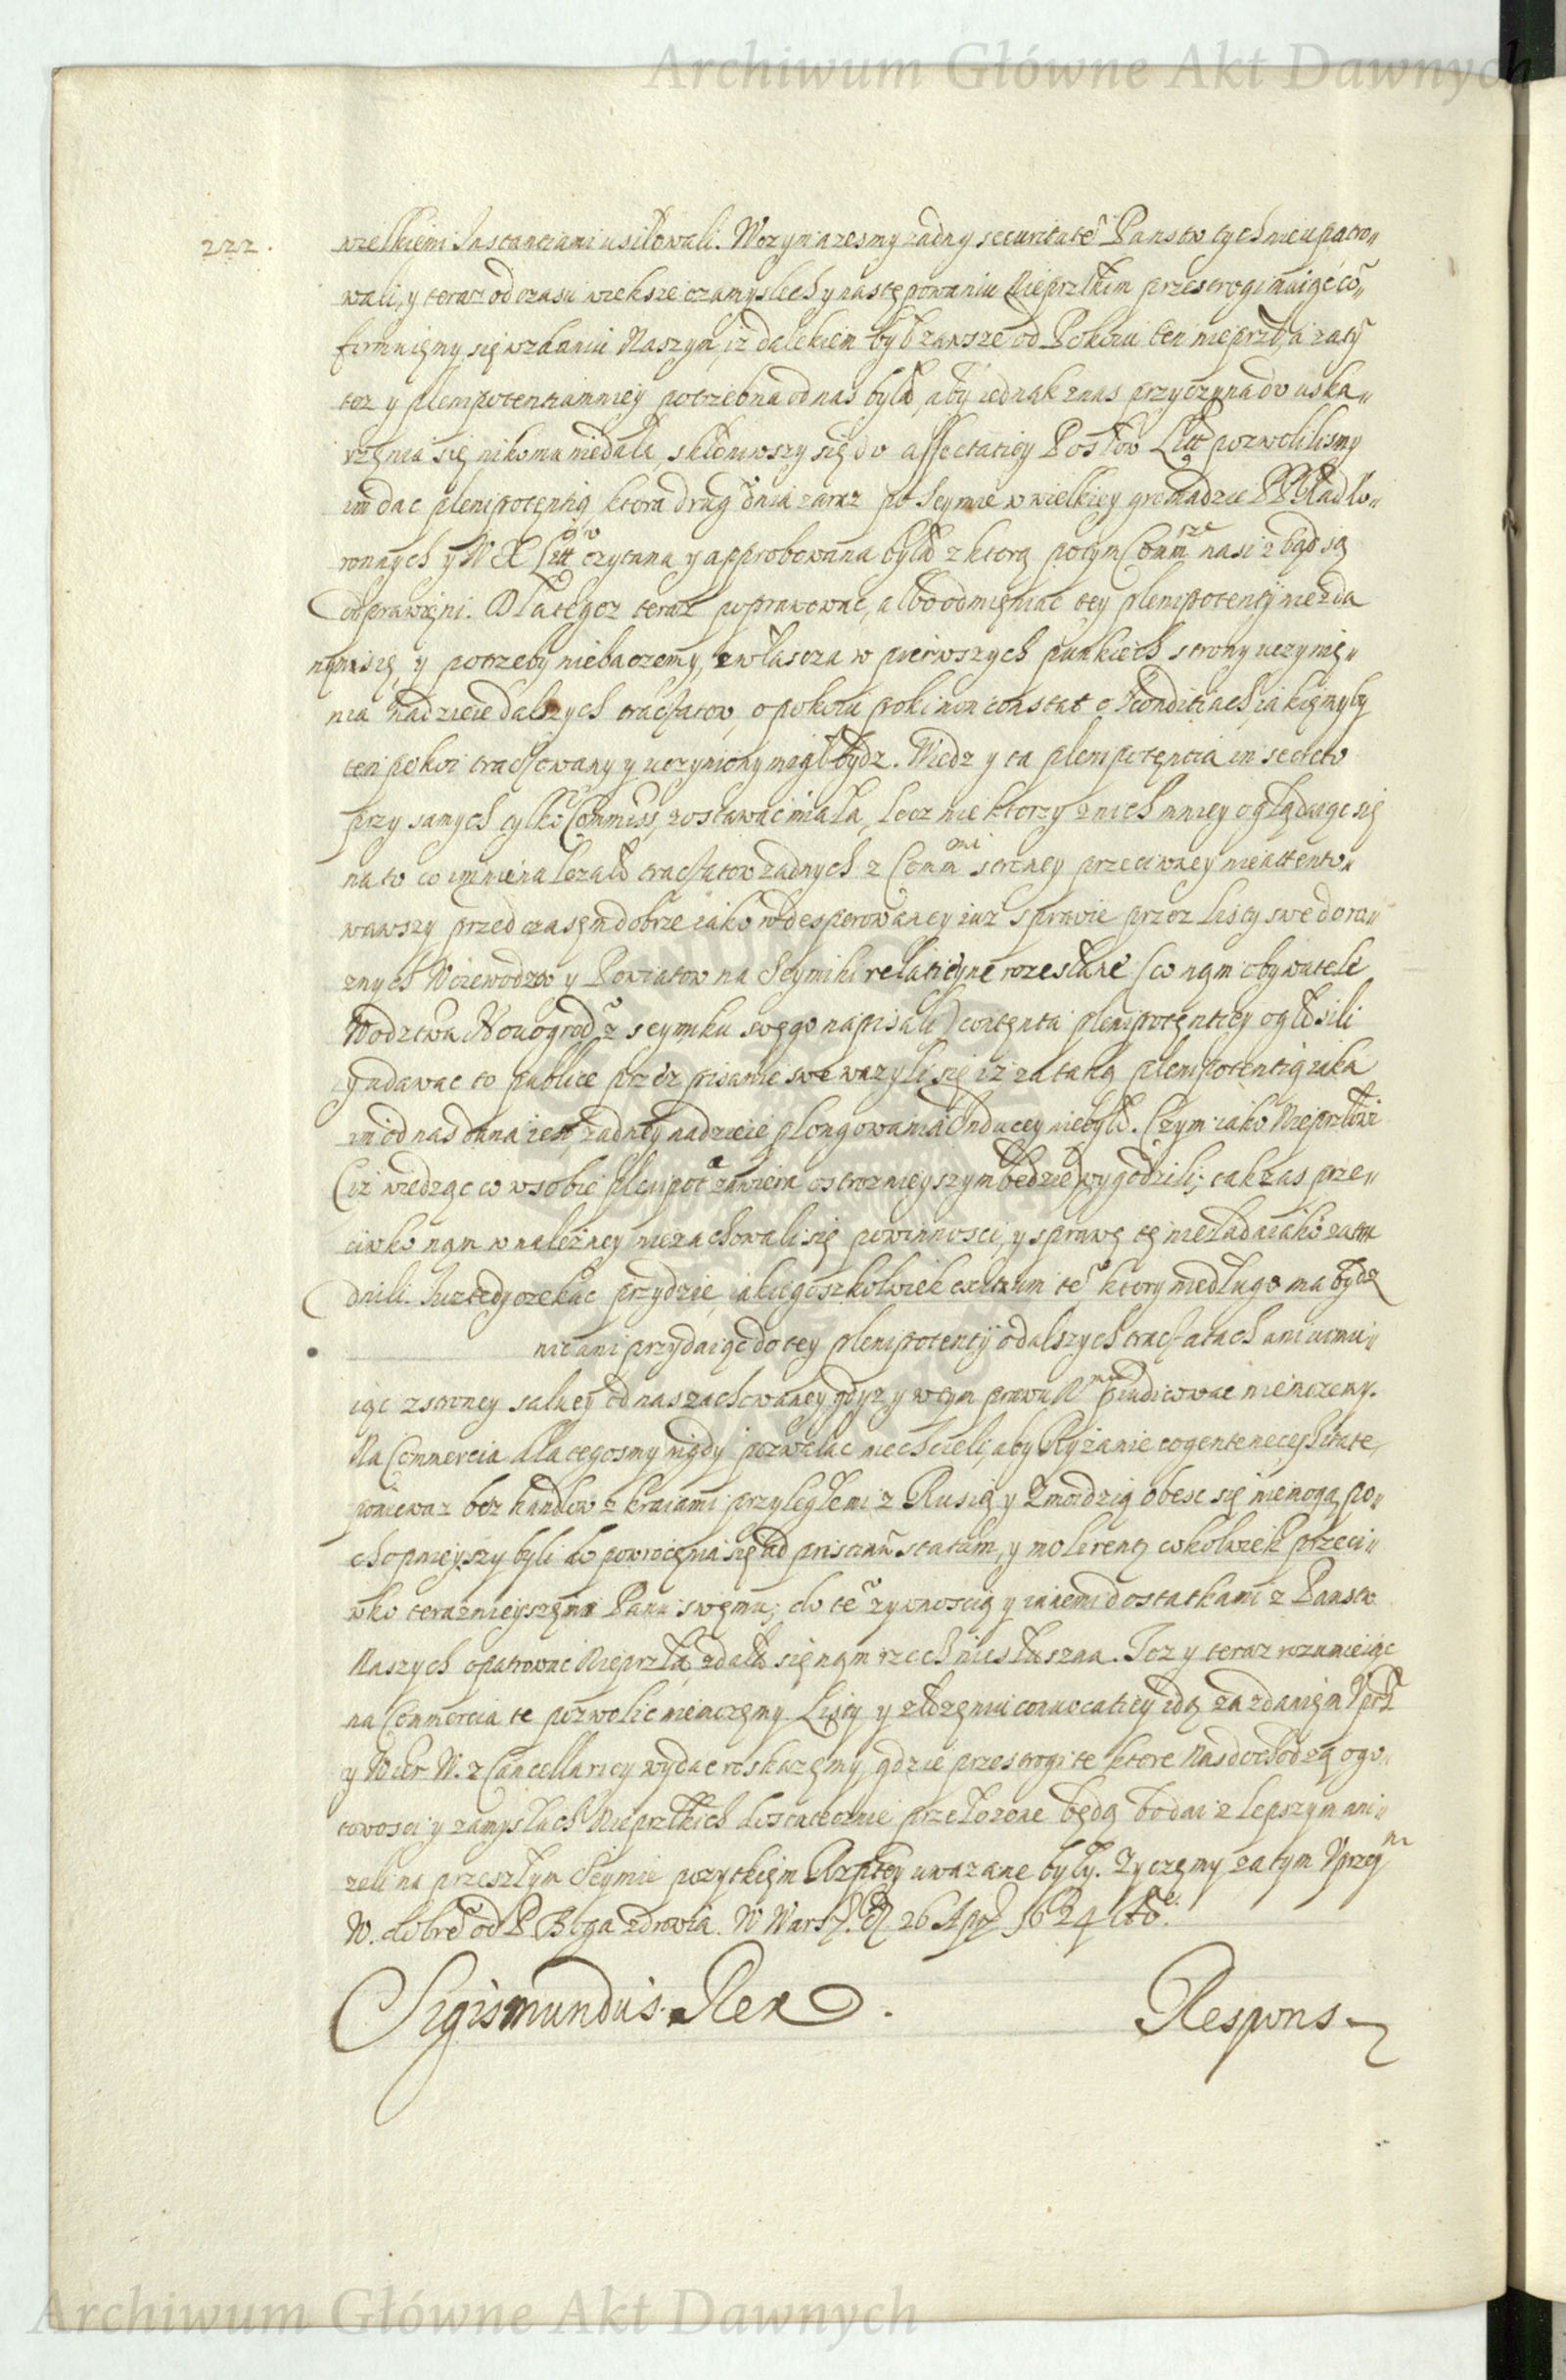 Archiwum Główne Akt Dawnych
222.
wielkiemi Instantiami usilowali. W czym azesmy zadny securitatē Panstw tych nie upatro„
wali, y teraz od czasu wieksze o zamyslech y nastepowaniu Nieprzłkim przestrogi maiąc cō„
firmuięmy się w zdaniu Naszym, iz dalekiem był zawsze od Pokoiu ten nieprzł, a zatỹ
toz y plenipotentia mniey potrzebna od nas była, aby iednąk z nas przyczyna do uska„
rzęnia się nikomu niedała, skłoniwszy się do affectatiey Posłow Litt pozwolilismy
im dac plenipotentią ktora drugō dnia zaraz po Seymie w wielkiey gromadzie PP Rad Ko„
ronnych y W X Litt czytana y approbowana była z ktorą potym Comm nasi z bąd są
odprawięni. Dlategoz teraz poprawowac, albo odmięniac tey plenipotentÿ nie zda
nąm się, y potrzeby niebaczemy, zwłascza w pierwszych punkciech strony uczynię„
nia nadzieie dalszych tractatow, o pokoiu poki non constat o Konditiach, iakięmyby
ten pokoi tractowany y uczyniony mogł bydz. Wiedz y ta plenipotęntia in secreto
przy samych tylko Commiss, zostawac miała, lecz niektorzy z nich mniey oglądaiąc się
na to co im nienalezało tractatow zadnych z Comm strony przeciwney nie attento„
wawszy przed czasęm dobrze iako w desperowaney iuz sprawie przez listy swe do ro„
znych Woiewodztw y Powiatow na Seymiki relatieyne rozesłane (co nąm obywatele
Wodztwa Nowogrodō z seymiku swęgo napisali) contęnta plenipotęntiey ogłosili
y udawac to publice przez pisanie swe wazyli się iz za taką plenipotentią iaka
im od nas dana iest zadney nadzieie plongowania Induciey niebyło. Czym iako Nieprzłowi
(iz wiedząc co w sobie plenipotā zawiera ostroznieyszym bedzie) wygodzili; tak zas prze„
ciwko nąm w nalezney niezachowali się powinnosci, y sprawę tę nieladaiako zatru
dnili. Iuz tedy czekac przydzie, iakiegoszkolwiek exitum tē ktory niedługo ma bydz
nic ani przydaiąc do tey plenipotentÿ o dalszych tractatach ani uimu„
iąc z strony salwy od nas zachowaney gdyz y w tym prawu Nmu piudicowac niemozemy.
Na Commercia dlategosmy nigdy pozwalac niechcieli, aby Ryżanie cogente necessitate,
poniewaz bez handlow z kraiami przyległemi z Rusią y Zmoidzią obesc się niemogą, po„
chopnieyszy byli do powrocęnia się ad priscum statum, y molirentur cokolwiek przeci„
wko teraznieyszęmu Panu swęmu; do tē zywnoscią y innemi dostatkami z Panstw
Naszych opatrowac Nieprzła zdała się nąm rzecz niesłuszna. Toz y teraz rozumieiąc
na Commercia te pozwolic niemozęmy. Listy y złozęniu convocatiey idą za zdanięm Vprz
y Wier W. z Cancellariey wydac roskazęmy, gdzie przestrogi te ktore Nas dochodzą o go„
towosci y zamysłach Nieprzłkich dostatecznie przełozone będą bodai z lepszym ani„
zeli na przeszłym Seymie pozytkięm Rzptey uwazane były. Zyczęmy zatym Vprzey
W. dobrē od P. Boga zdrowia. W Warsz. D. 26 Apr. 1624
Sigismundus Rex.
Respons
Archiwum Główne Akt Dawnych